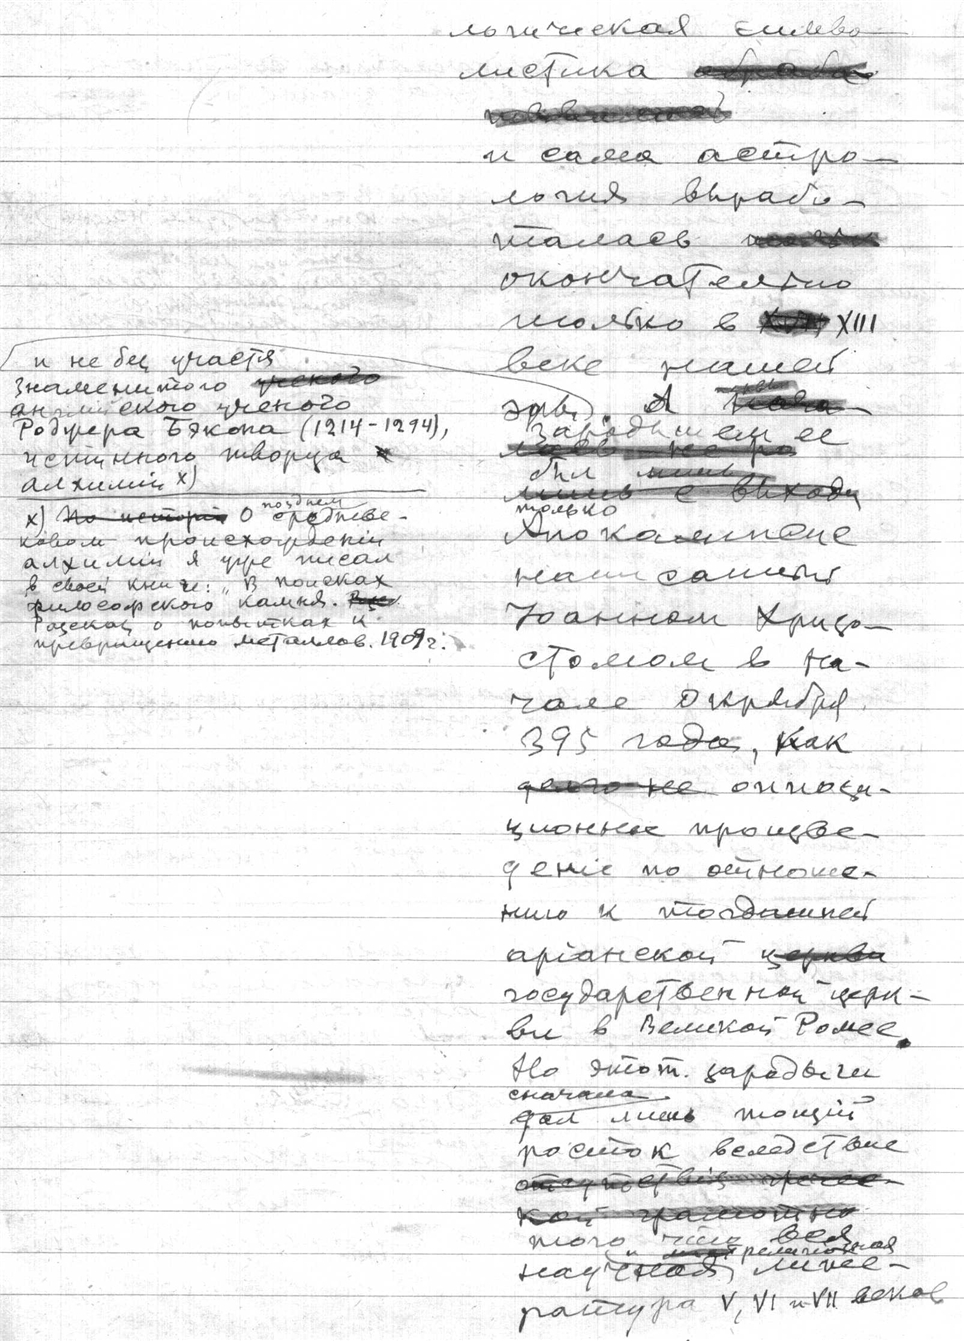 логическая симво-
листика
и сама астро-
логия вырабо-
талась
окончательно
только в XIII
веке нашей
эры. А
зародышем ее
был
только
Апокалипсис
написанный
Иоанном Хризо-
стомом в на-
чале Октября
395 года, как
оппози-
ционное произве-
деніе по отноше-
нию к тогдашней
аріанской церкви
государственной церк-
ви в Великой Ромее.
Но этот зародыш
сначала
дал лишь тощій
росток вследствие
того что вся
и религиозная
научная, лите-
ратура V, VI и VII веков
и не без участія
знаменитого ученого
английского ученого
Роджера Бэкона (1214-1294),
истинного творца
алхиміи x)
x) Но исторія О позднем средневе-
ковом происхожденіи
алхиміи я уже писал
в своей книге: „В поисках
философского камня.
Рассказ о попытках к
превращению металлов. 1909 г.